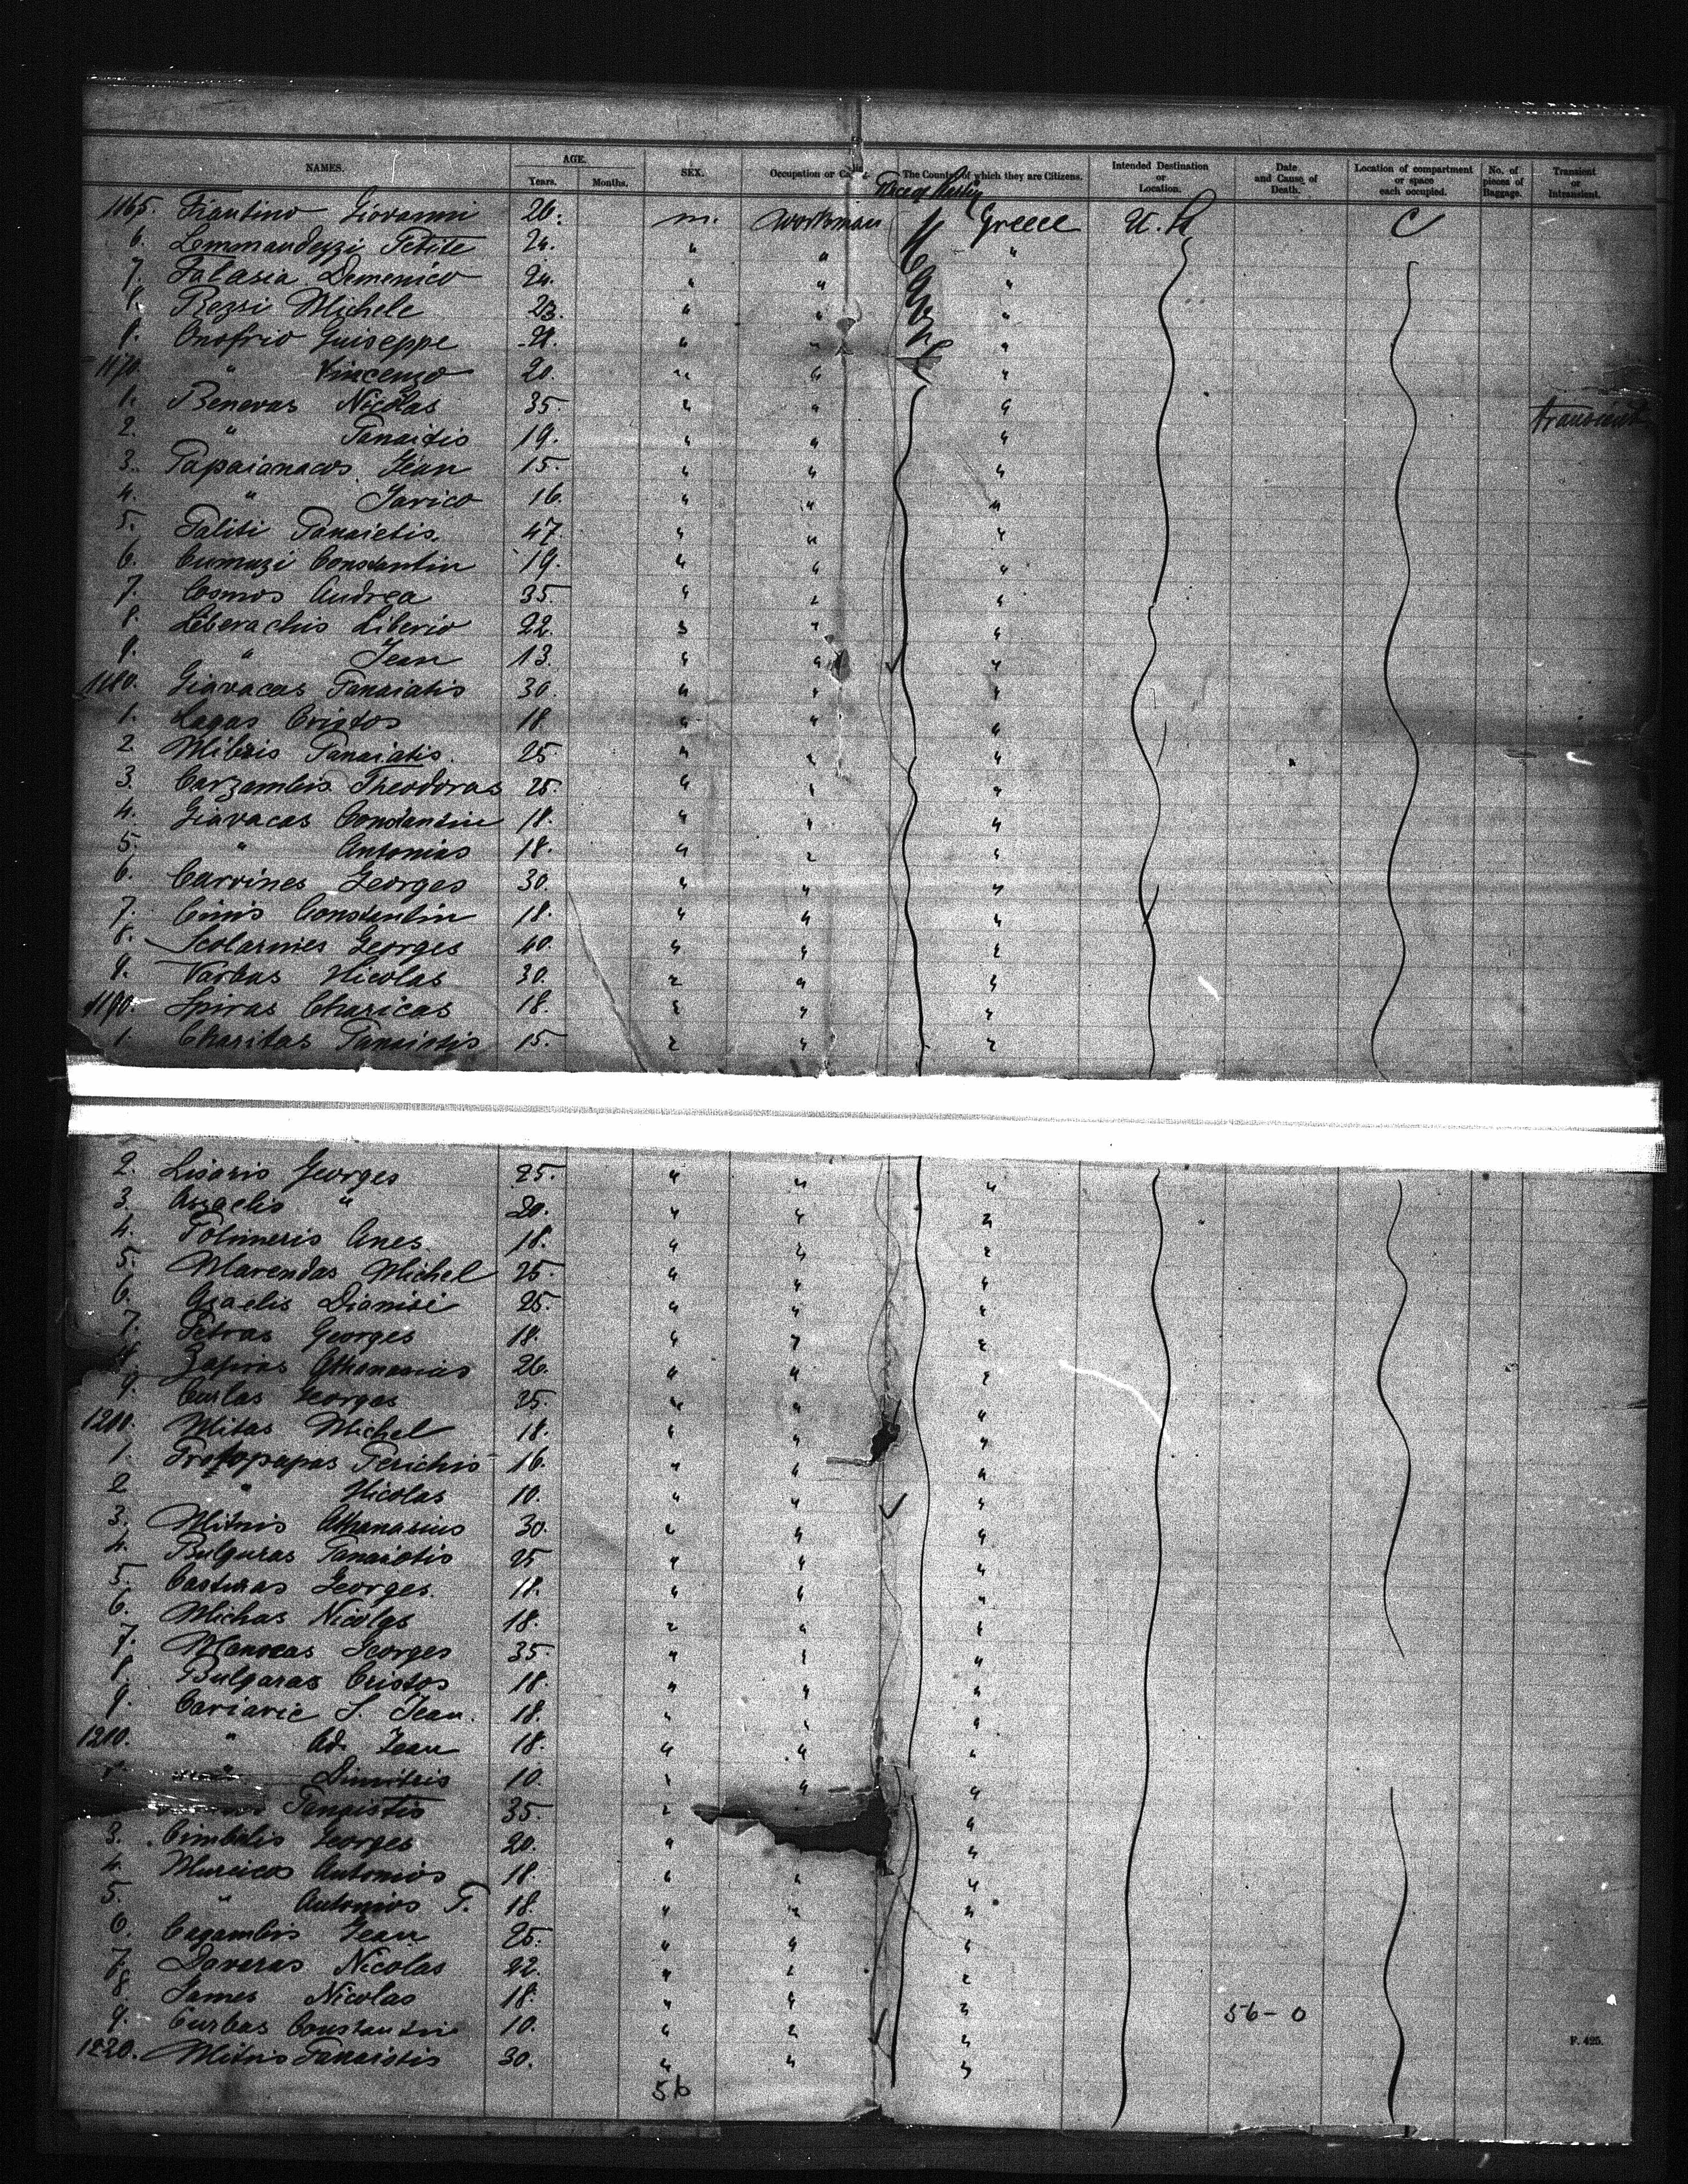 NAMES. AGE. SEX. Occupation or The Country of which they are Citizens. Intended Destination or Location. Date and Cause of Death. Location of compartment or space each occupied. No. of pieces of Baggage. Transient or Intransient.
Years. Months.
1165. Frautino Giovanni 26. m. workman Greece U. S. C
6. Lemmandezzi Petite 24. " " "
7. Falasia Domenico 24. " " "
8. Rezzi Michele 23. " " "
9. Onofrio Guiseppe 21. " " "
1170. " Vincenzo 20. " " "
1. Benevas Nicolas 35. " " " transient
2. " Panaitis 19. " " "
3. Papaianacos Jean 15. " " "
4. " Jarico 16. " " "
5. Politi Panaietis. 47. " " "
6. Cumuzi Constantin 19. " " "
7. Cosmos Andrea 35. " " "
8. Leberachis Liberio 22. " " "
9. " Jean 13. " " "
1180. Giavacas Panaiatis 30. " " "
1. Lagas Cristos 18 " " "
2. Mibris Panaiatis. 25 " " "
3. Carzambis Theodoras 25. " " "
4. Giavacas Constantin 18. " " "
5. " Antonias 18. " " "
6. Carvines Georges 30. " " "
7. Cinis Constantin 18. " " "
8. Scolarines Georges 40. " " "
9. Varbas Nicolas 30. " " "
1190. Spiras Charicas 18. " " "
1. Charitas Panaiotis 15. " " "
2. Lisaris Georges 25. " " "
3. Arzaelis " 20. " " "
4. Polimeris Anes. 18. " " "
5. Marendas Michel 25. " " "
6. Azaelis Dionisi 25. " " "
7. Petras Georges 18. " " "
Zapiras Athanasias 26. " " "
9. Curlas Georges 25. " " "
1200. Mitas Michel 18. " " "
1. Protopapas Perichis 16. " " "
2 " Nicolas 10. " " "
3. Mitris Athanasius 30. " " "
4. Bulguras Panaiotis 25 " " "
5. Casturas Georges. 18. " " "
6. Michas Nicolas 18. " " "
7. Manocas Georges 35. " " "
8. Bulgaras Cristos 18. " " "
9. Cariavie S. Jean. 18. " " "
1210. " Ad. Jean 18. " " "
Dimitris 10. " " "
Panaistis 35. " "
3. Cimbilis Georges 20. " "
4. Mureicos Antonios 18. " " "
5. " Antonios P. 18. " " "
6. Cagambis Jean 25. " " "
7. Daveras Nicolas 22. " " "
8. James Nicolas 18. " " " 56-0
9. Curbas Constantin 10. " " " F. 425.
1220. Mitris Panaistis 30. " " "
56